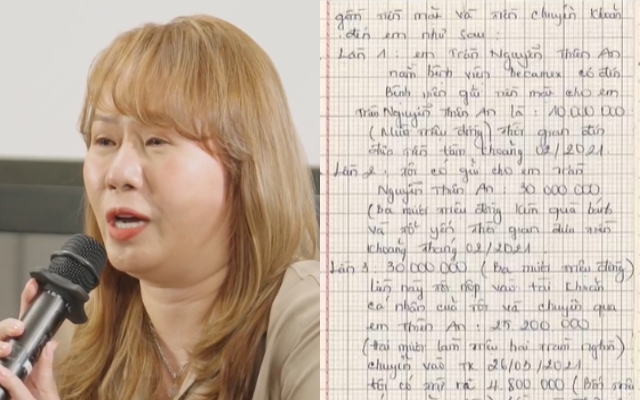 gồm tiền mặt và tiền chuyển khoản
đến em như sau :
Lần 1 : em Trần Nguyễn Thiên An
nằm bệnh viện Becamex có đến
Bệnh viện gửi tiền mặt cho em
Trần Nguyễn Thiên An là : 10.000 000
(Mười triệu đồng) thời gian đến
đưa tiền tầm khoảng 02/2021
Lần 2 : tôi có gửi cho em Trần
Nguyễn Thiên An : 30 000 000
(ba mươi triệu đồng kèm quà bánh
và tổ yến thời gian đưa tiền
khoảng tháng 02/2021
Lần 3 : 30 000 000 (Ba mươi triệu đồng)
lần này tôi nộp vào tài khoản
cá nhân của tôi và chuyển qua
em Thiên An : 25 200 000
(hai mươi lăm triệu hai trăm nghìn)
chuyển vào TK 26/03/2021
tôi có 4 800 000 (Bốn